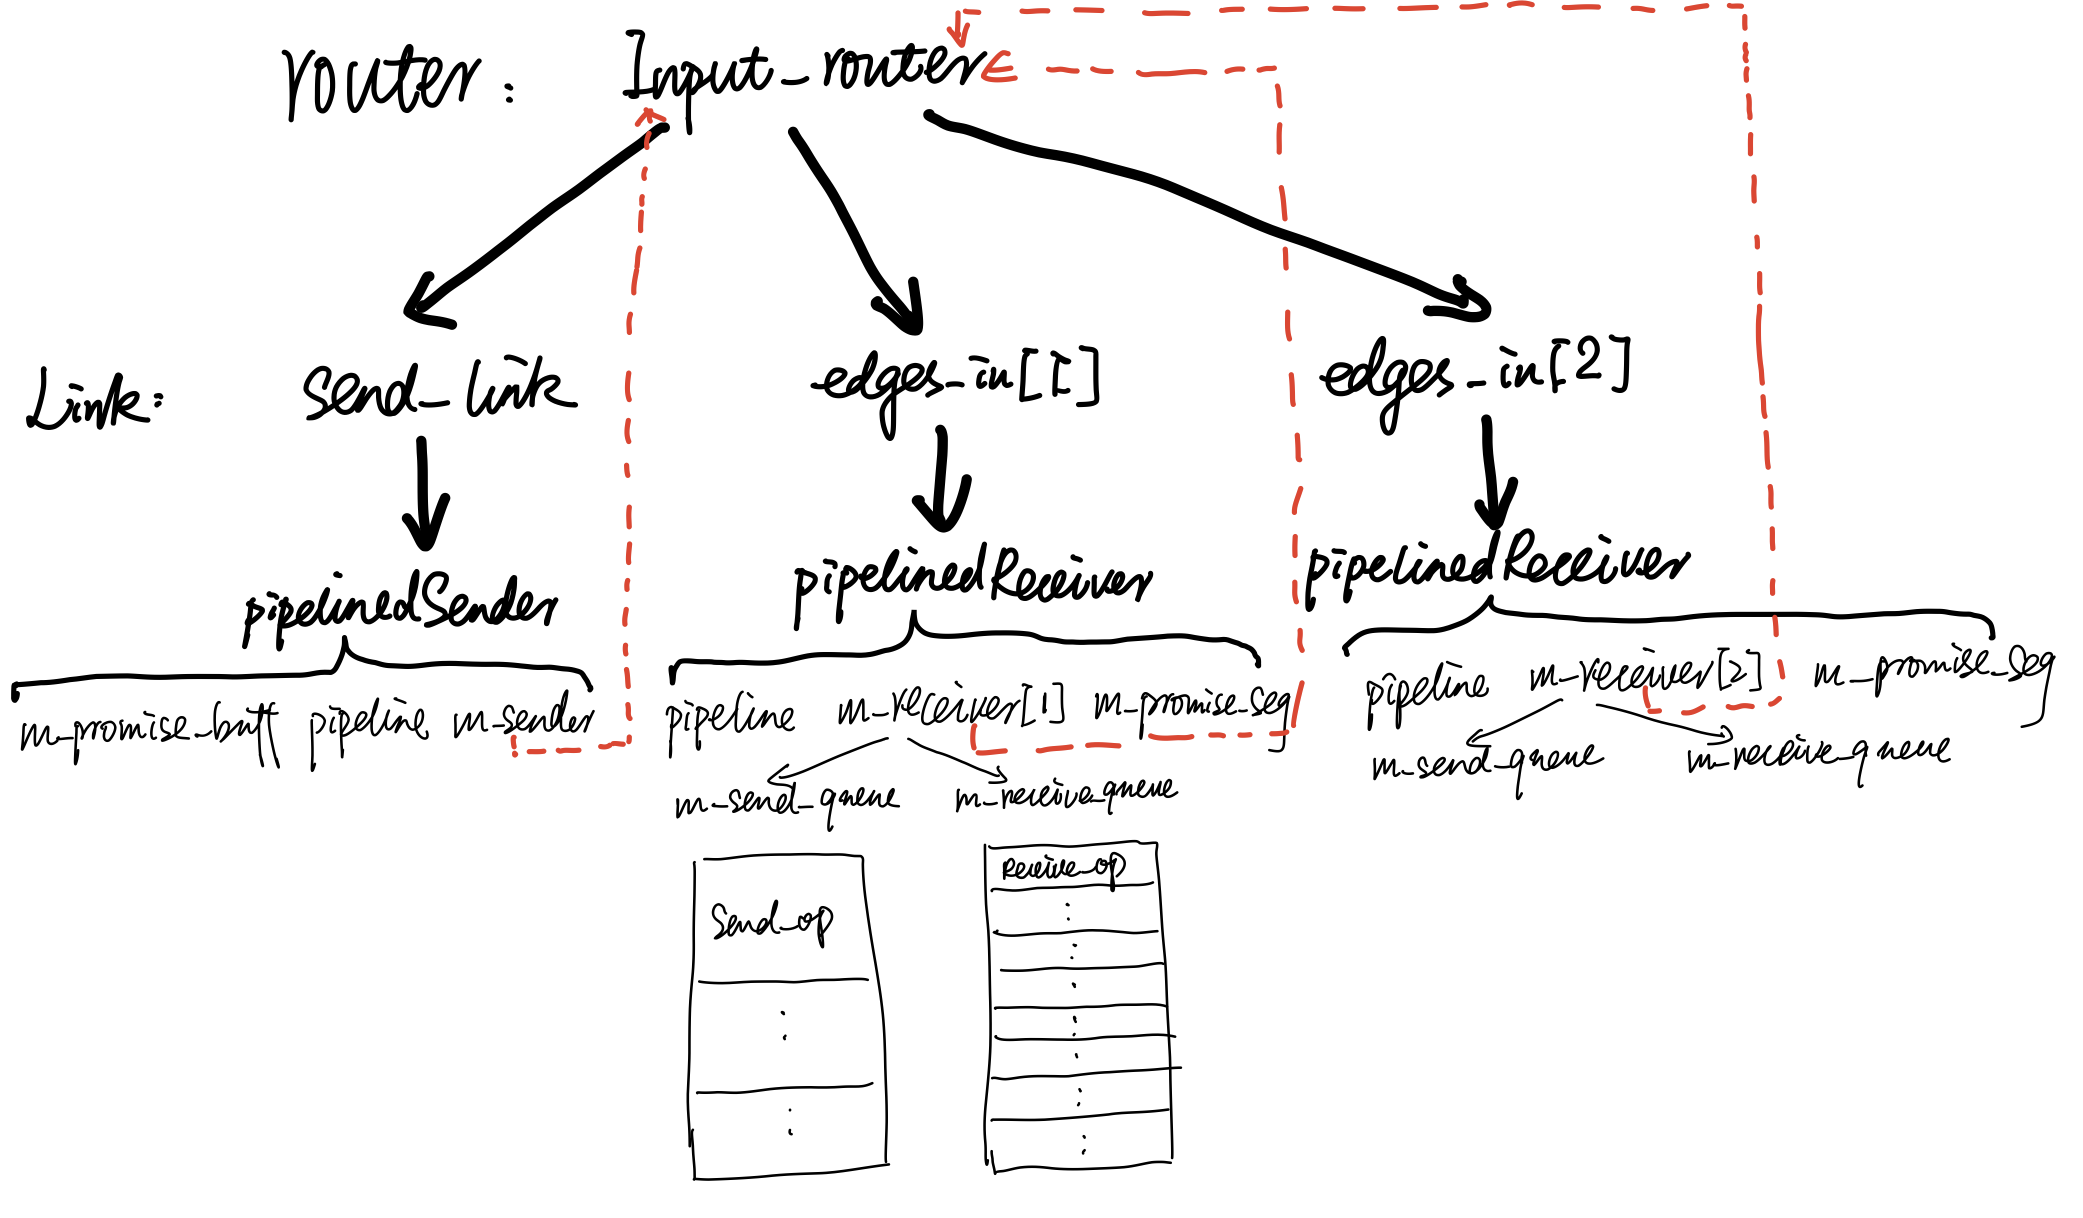 router : Input_router
Link: send_link edges_in[1] edges_in[2]
pipelinedSender pipelinedReceiver pipelinedReceiver
m_promise_buff pipeline m_sender pipeline m_receiver[1] m_promise_seq pipeline m_receiver[2] m_promise_seq
m_send_queue m_receive_queue m_send_queue m_receive_queue
Send_op Receive_op